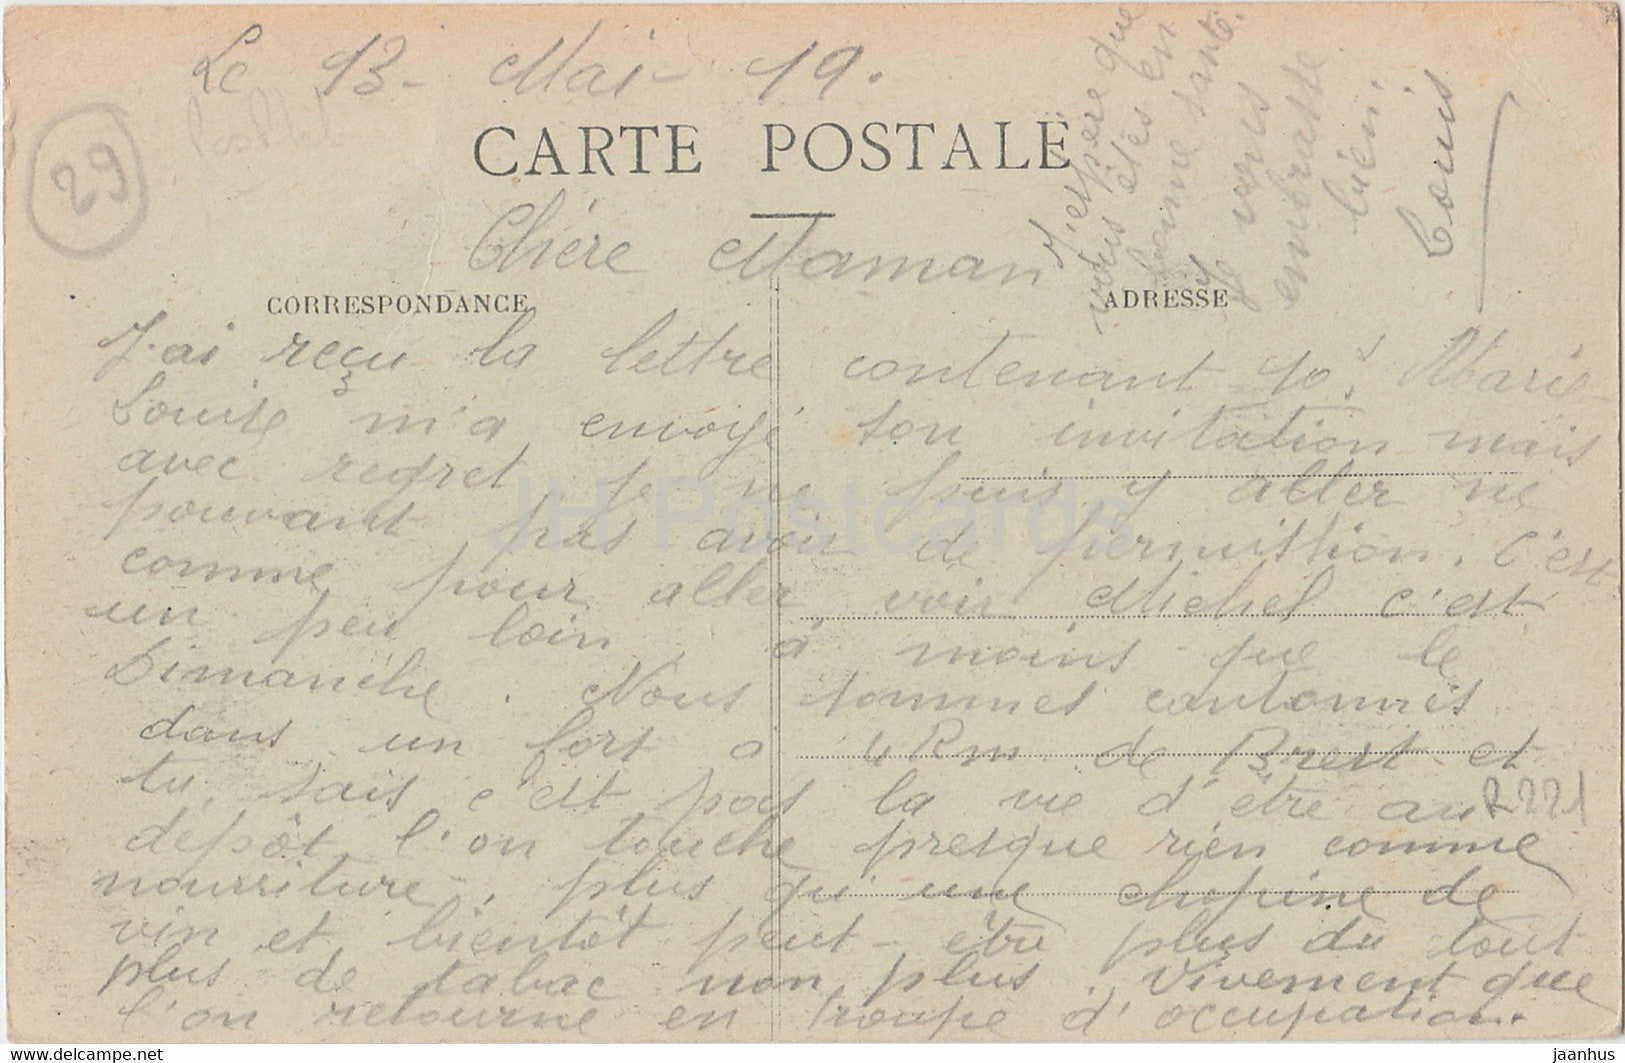 Le 13 - Mai - 19.
29
CARTE POSTALE
Chère Maman
CORRESPONDANCE
ADRESSE
J'ai reçu la lettre contenant 10f. Marie
Louise m'a envoyé son invitation mais
avec regret je ne puis y aller ne
pouvant pas avoir de permission. C'est
comme pour aller voir Michel c'est
un peu loin à moins que le
Dimanche. Nous sommes cantonnés
dans un fort à 4 Km de Brest et
tu sais c'est pas la vie d'être au
dépôt l'on touche presque rien comme
nourriture, plus qu'une chopine de
vin et bientôt peut-être plus du tout
plus de tabac non plus. Vivement que
l'on retourne en troupe d'occupation.
J'espère que
vous êtes en
bonne santé.
Je vous
embrasse
bien.
Louis
R221
JH Postcards
jaanhus @ www.delcampe.net